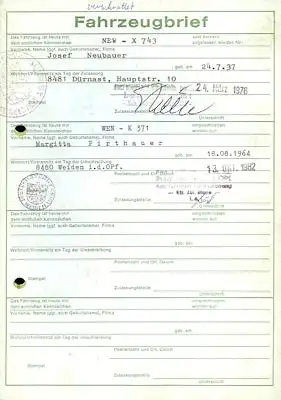 verschrottet
Fahrzeugbrief
Das Fahrzeug ist heute mit
dem amtlichen Kennzeichen
NEW - X 743
zum Verkehr
zugelassen worden für
Vorname, Name (ggf. auch Geburtsname), Firma
Josef Neubauer
geb. am 24.7.37
Wohnort/Firmensitz am Tag der Zulassung
8481 Dürnast, Hauptstr. 10
24. 1978
Unterschrift
Das Fahrzeug ist heute mit
dem amtlichen Kennzeichen
WEN - K 371
umgeschrieben
worden für
Vorname, Name (ggf. auch Geburtsname), Firma
Margitta Pirthauer
geb. am 18.08.1964
Wohnort/Firmensitz am Tag der Umschreibung
8480 Weiden i.d.OPf.
13. 1982
Unterschrift
Das Fahrzeug ist heute mit
dem amtlichen Kennzeichen
umgeschrieben
worden für
Vorname, Name (ggf. auch Geburtsname), Firma
geb. am
Wohnort/Firmensitz am Tag der Umschreibung
Postleitzahl und Ort, Datum
Stempel
Zulassungsstelle
Unterschrift
Das Fahrzeug ist heute mit
dem amtlichen Kennzeichen
umgeschrieben
worden für
Vorname, Name (ggf. auch Geburtsname), Firma
geb. am
Wohnort/Firmensitz am Tag der Umschreibung
Postleitzahl und Ort, Datum
Stempel
Zulassungsstelle
Unterschrift